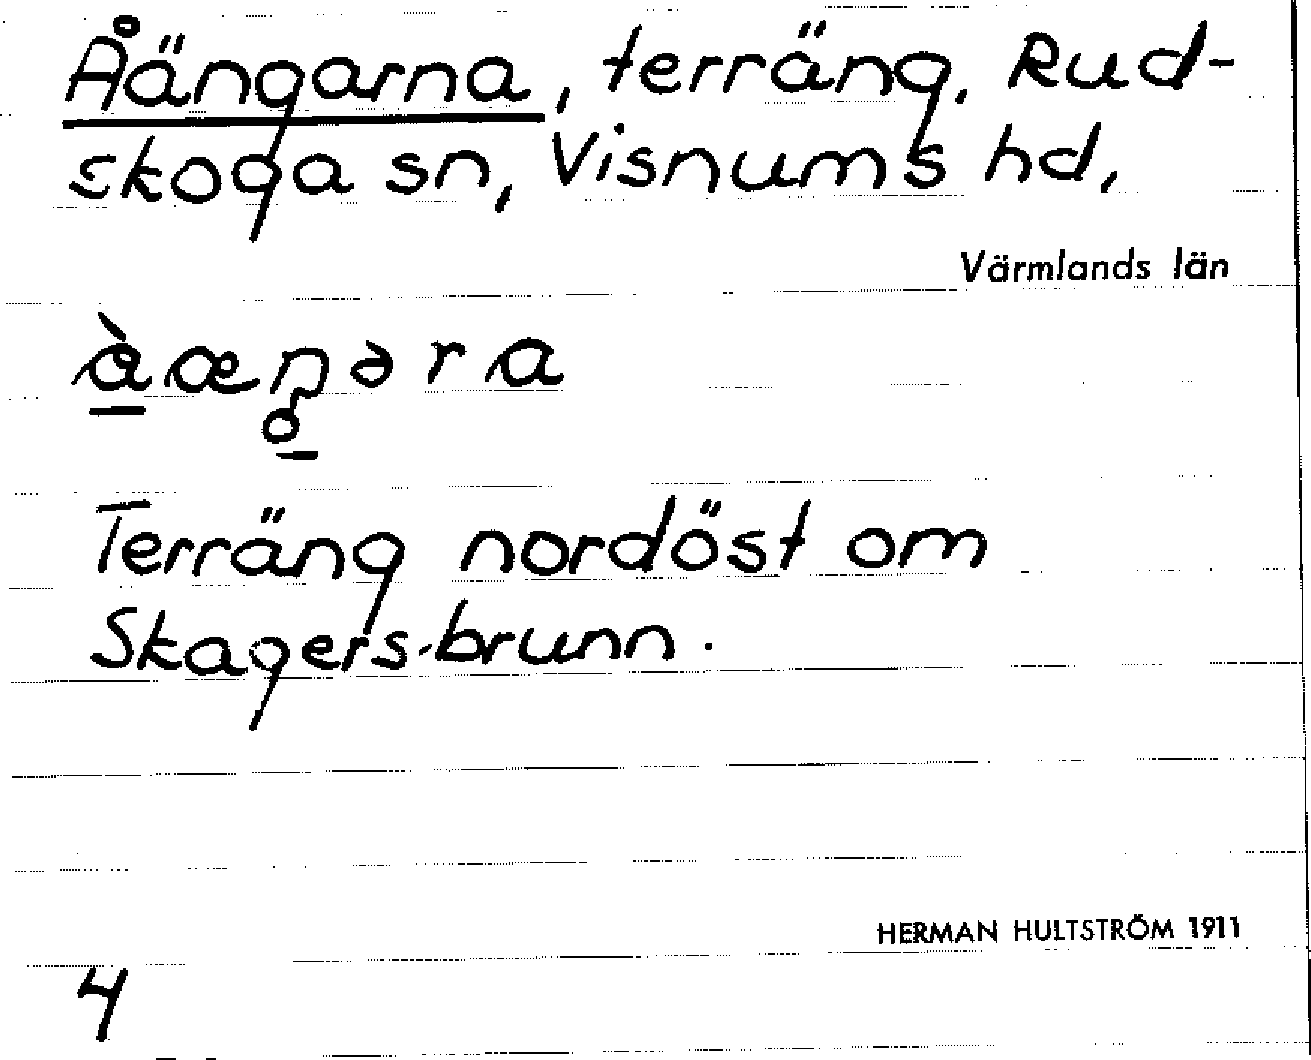 Åängarna, terräng, Rud-
skoga sn, Visnums hd,
Värmlands län
Terräng nordöst om
Skagers-brunn.
HERMAN HULTSTRÖM 1911
4